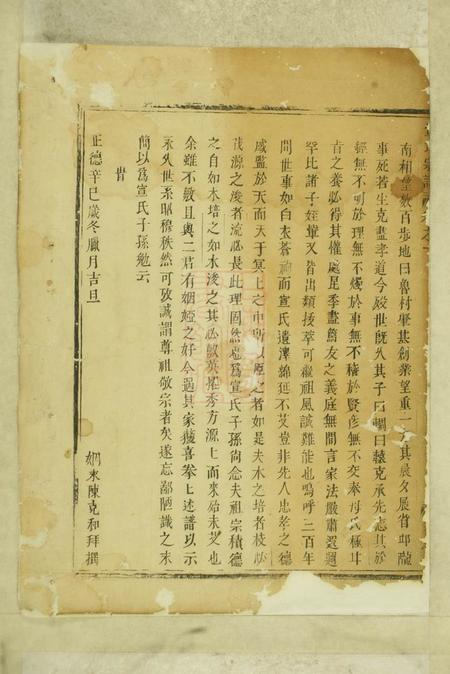 南相望數百步地曰魯村肇基創業望重一方其晨夕展省邱隴
事死若生克盡孝道今歿世既久其子曰輞曰轅克承先志其於
經無不明於理無不燭於事無不稽於賢彥無不交奉母氏極甘
旨之養必得其懽處足季盡舊友之義庭無間言家法嚴肅遐邇
罕比諸子姪輩又皆出類拔萃可繼祖風誠難能也嗚呼三百年
間世事如白衣蒼狗而宣氏遺澤綿延不艾豈非先人忠孝之德
感監於天而天于冥上之中所以庇之者如是夫木之培者枝必
茂源之浚者流必長此理固然也為宣氏子孫尚念夫祖宗積德
之自如木培之如水浚之其必敷英擢秀方源上而來始未艾也
余雖不敏且與二君有姻婭之好今遇其家獲喜拳上述譜以示
永久世系昭穆秩然可攷誠謂尊祖敬宗者矣遂忘鄙陋識之末
簡以為宣氏子孫勉云
旹
正德辛巳歲冬臘月吉旦
姻末陳克和拜撰